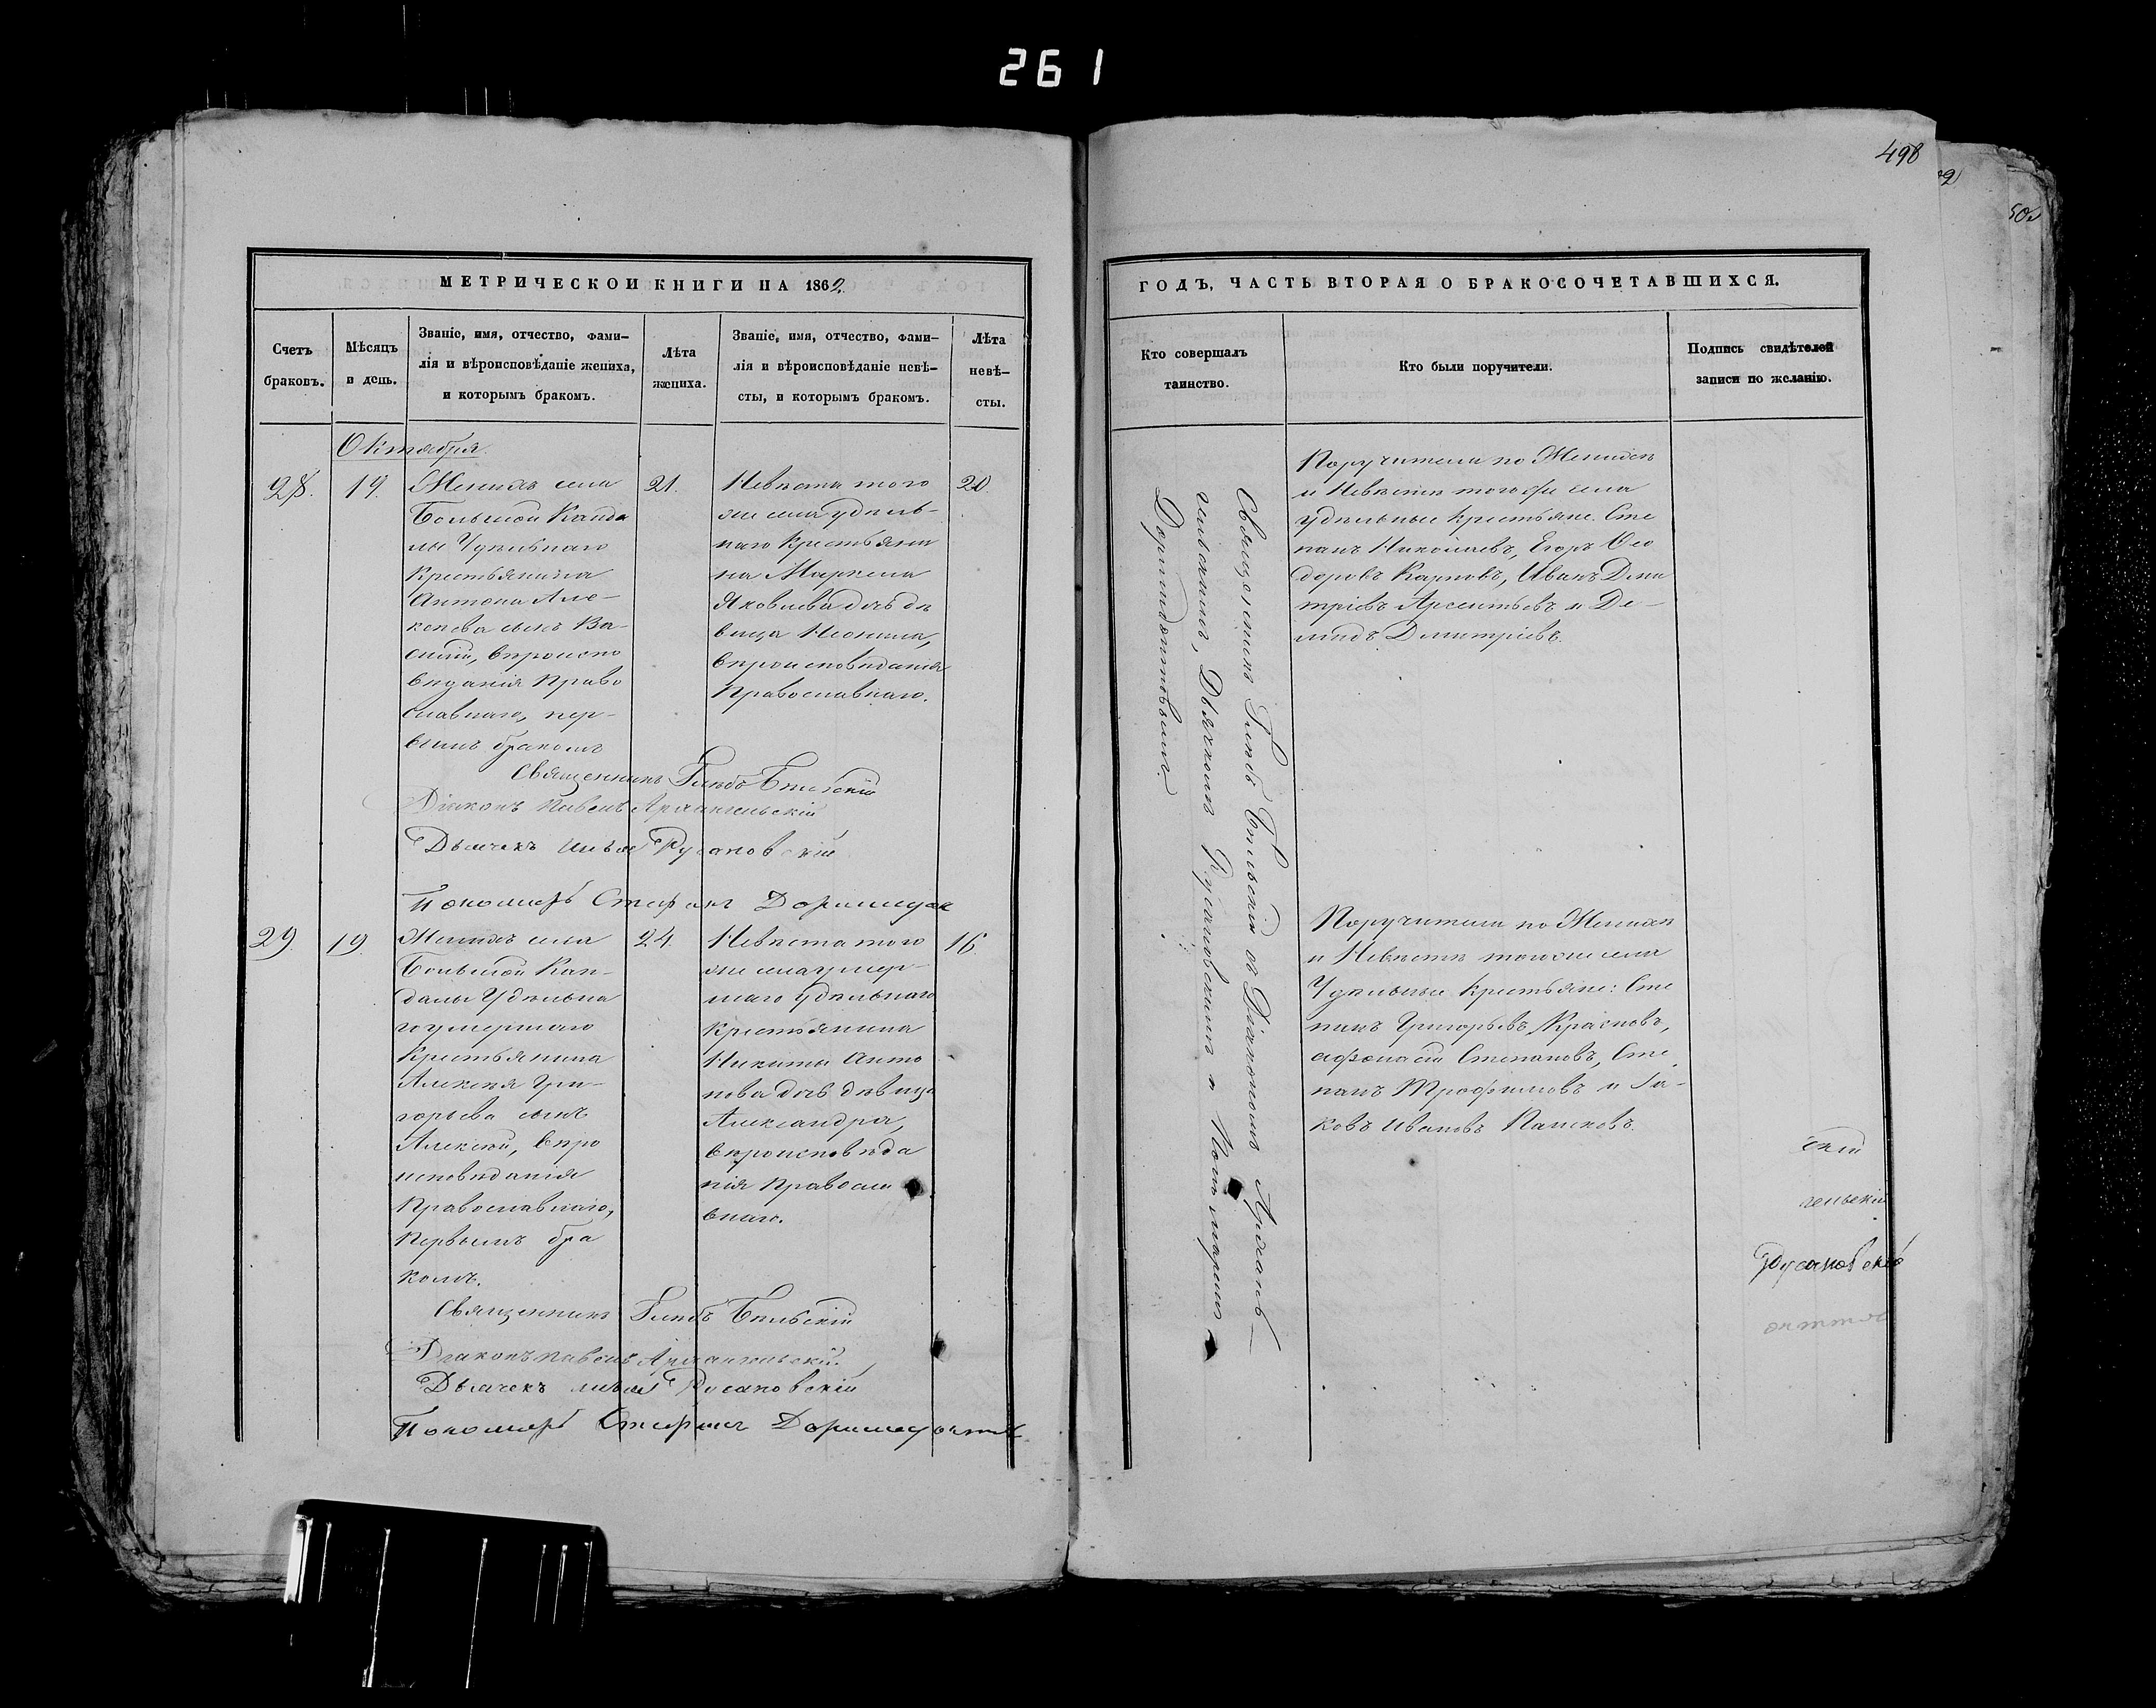 261
498
МЕТРИЧЕСКОЙ КНИГИ НА 1862
Счетъ браковъ.
Мѣсяцъ и день.
Званіе, имя, отчество, фами-
лія и вѣроисповѣданіе жениха,
и которымъ бракомъ.
Лѣта жениха.
Званіе, имя, отчество, фами-
лія и вѣроисповѣданіе невѣ-
сты, и которымъ бракомъ.
Лѣта невѣ-
сты.
Октября.
28.
19.
Женихъ села
Большой Канда
лы Удѣльнаго
Крестьянина
Антона Але-
ксѣева сынъ Ва-
силій, вѣроиспо
вѣданія Право
славнаго, пер-
вымъ бракомъ
21.
Невѣста того
же села удѣль-
наго крестьяни
на Маркела
Яковлева дочь дѣ
вица Неонила,
вѣроисповѣданія
Православнаго.
20.
Священникъ Глѣбъ Бѣльскій
Діаконъ Павелъ Архангельскій
Дьячекъ Илья Русановскій
Пономарь Стефанъ Доримедон
29.
19.
Женихъ села
Большой Кан-
далы Удѣльна
го умершаго
Крестьянина
Алексѣя Гри-
горьева сынъ
Алексѣй, вѣро
исповѣданія
Православнаго,
Первымъ бра
комъ.
24.
Невѣста того
же села умер-
шаго удѣльнаго
крестьянина
Никиты Анто
нова дочь дѣвица
Александра,
вѣроисповѣда
нія Правосла
внаго.
16.
Священникъ Глѣбъ Бѣльскій
Діаконъ Павелъ Архангельскій
Дьячекъ Илья Русановскій
Пономарь Стефанъ Доримедонтовъ
ГОДЪ, ЧАСТЬ ВТОРАЯ О БРАКОСОЧЕТАВШИХСЯ.
Кто совершалъ
таинство.
Кто были поручители.
Подпись свидѣтелей
записи по желанію.
Священникъ Глѣбъ Бѣльскій съ Діакономъ Архан-
гельскимъ, Дьячкомъ Русановскимъ и Пономаремъ
Доримедонтовымъ.
Поручители по Женихѣ
и Невѣстѣ того же села
удѣльные крестьяне: Сте
панъ Николаевъ, Егоръ Ѳео
доровъ Карповъ, Иванъ Дими
тріевъ Арсентьевъ и Де-
мидъ Димитріевъ.
Поручители по Женихѣ
и Невѣстѣ того же села
Удѣльные крестьяне: Сте
панъ Григорьевъ Красновъ,
Афонасій Степановъ, Сте
панъ Трофимовъ и Іа-
ковъ Ивановъ
скій
гельскій
Русановскій